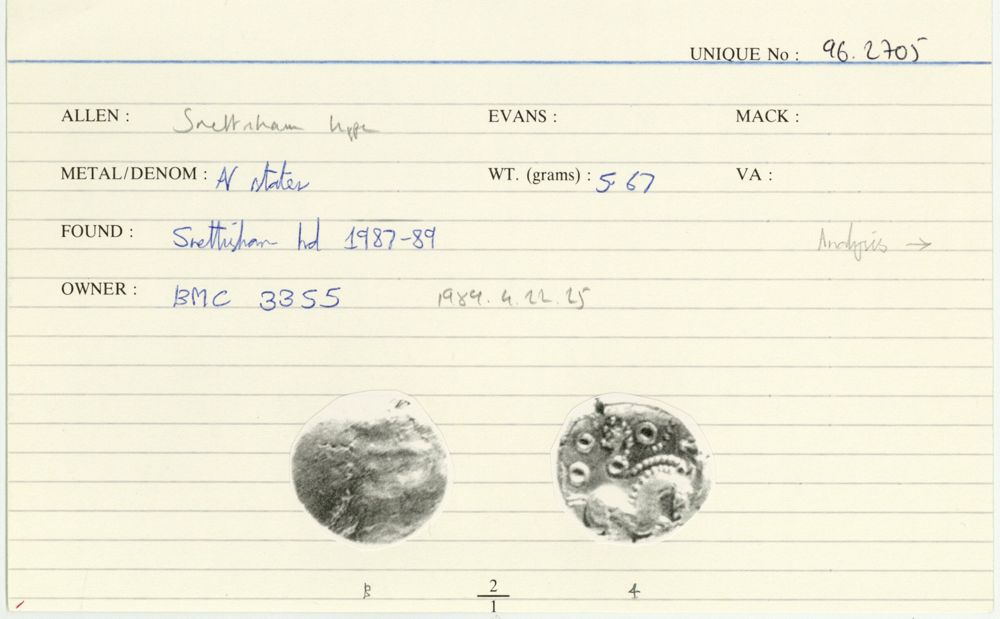 UNIQUE No : 96.2705
ALLEN : Snettisham type EVANS : MACK :
METAL/DENOM : AV stater WT. (grams) : 5.67 VA :
FOUND : Snettisham hd 1987-89 Analysis →
OWNER : BMC 3355 1989.4.22.25
B 2 4
1